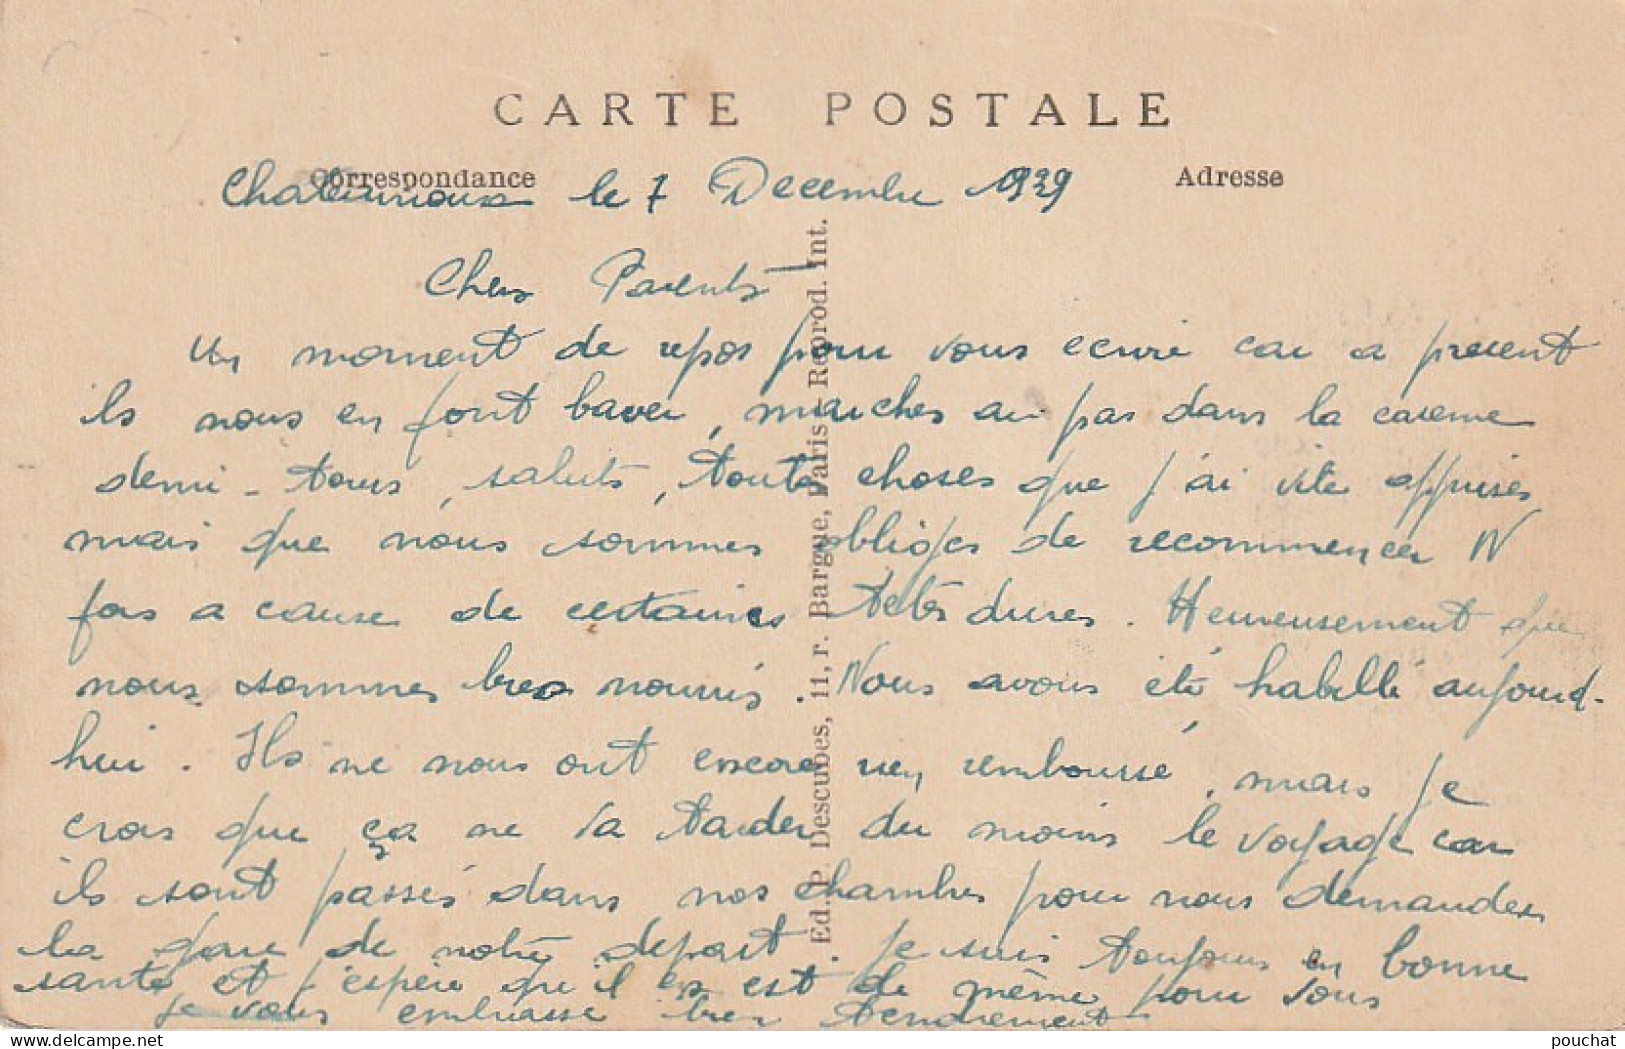 CARTE POSTALE
Correspondance
Adresse
Chateauroux le 7 Decembre 1939
Chers Parents
Un moment de repos pour vous ecrire car a present
ils nous en font baver, marches au pas dans la caserne
demi-tours, saluts, toute choses que j'ai vite apprises
mais que nous sommes obligés de recommencer N
fois a cause de certaines tetes dures. Heureusement que
nous sommes bien nourris. Nous avons été habillé aujourd-
hui. Ils ne nous ont encore rien remboursé, mais je
crois que ça ne va tarder du moins le voyage car
ils sont passés dans nos chambres pour nous demander
la gare de notre depart. Je suis toujours en bonne
santé et j'espère qu'il en est de même pour vous
Je vous embrasse bien tendrement
Ed. P. Descubes, 11, r. Bargue, Paris - Reprod. Int.
pouchat